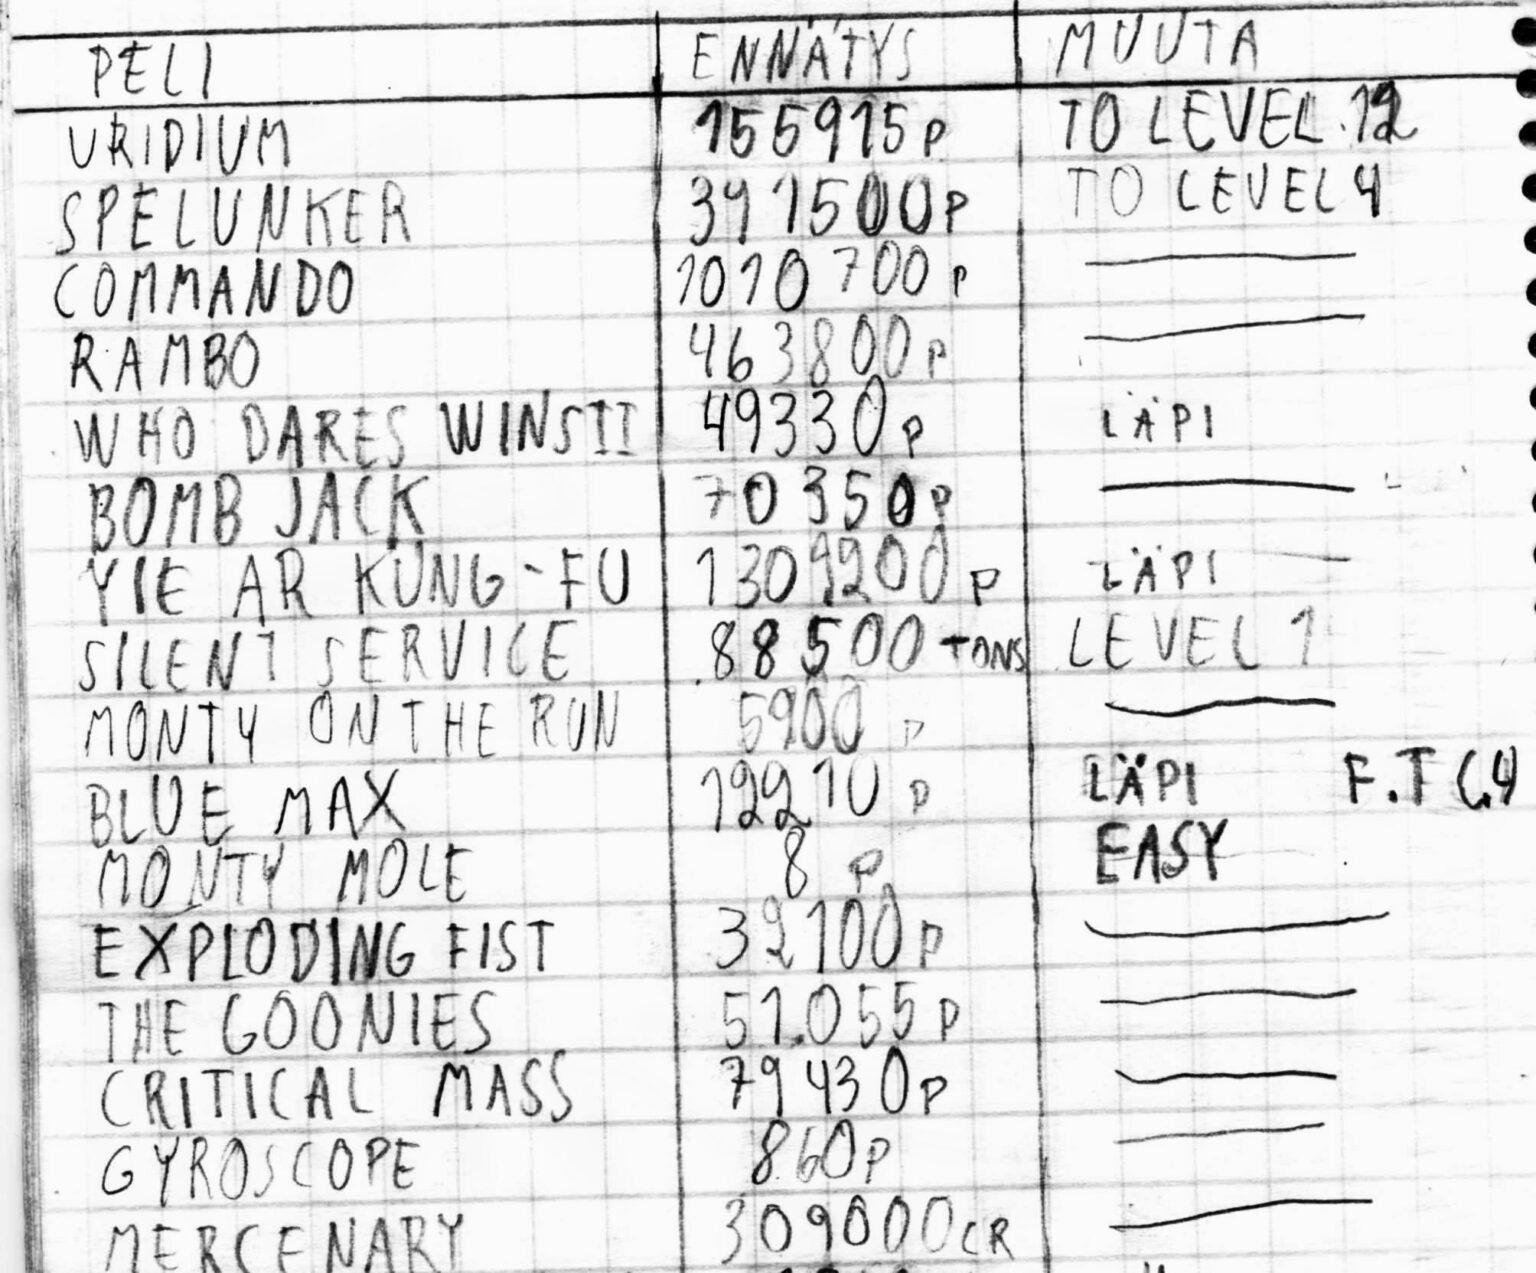 PELI ENNÄTYS MUUTA
URIDIUM 155915 P TO LEVEL 12
SPELUNKER 391500 P TO LEVEL 4
COMMANDO 1010700 P
RAMBO 463800 P
WHO DARES WINS II 49330 P LÄPI
BOMB JACK 70350 P
YIE AR KUNG-FU 1309200 P LÄPI
SILENT SERVICE 88500 TONS LEVEL 1
MONTY ON THE RUN 5900 P
BLUE MAX 12210 P LÄPI F.T C.4
MONTY MOLE 8 P EASY
EXPLODING FIST 32100 P
THE GOONIES 51.055 P
CRITICAL MASS 79430 P
GYROSCOPE 860 P
MERCENARY 309000 CR